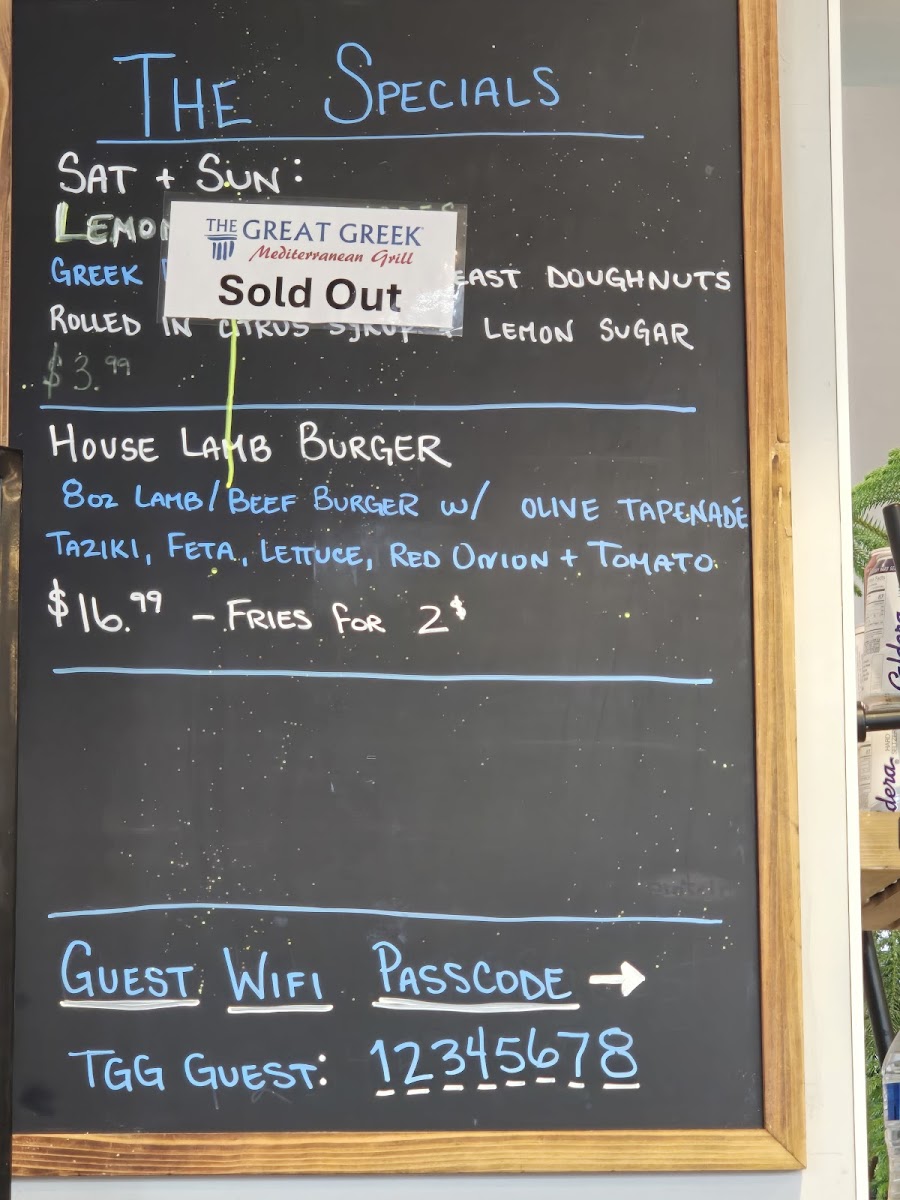 THE SPECIALS
SAT + SUN:
LEMON
THE GREAT GREEK
Mediterranean Grill
Sold Out
GREEK EAST DOUGHNUTS
ROLLED IN CITRUS SYRUP + LEMON SUGAR
$3.99
HOUSE LAMB BURGER
8oz LAMB/BEEF BURGER w/ OLIVE TAPENADÉ
TAZIKI, FETA, LETTUCE, RED ONION + TOMATO.
$16.99 - FRIES FOR 2$
GUEST WIFI PASSCODE →
TGG GUEST: 12345678
Caldera
dera